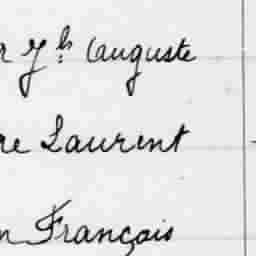 r Jh Auguste
re Laurent
n François